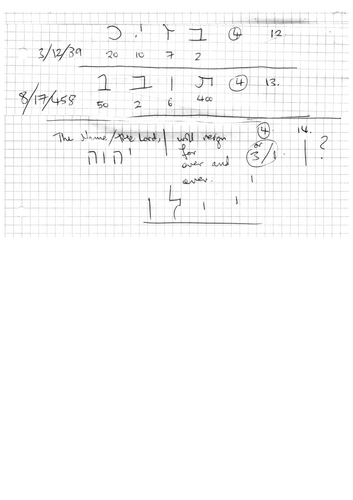 כ י ז ב ④ 12.
3/12/39 20 10 7 2
נ ב ו ת ④ 13.
8/17/458 50 2 6 400
The Name/the Lord, will reign ④ 14.
for or
יהוה over and 3/1 ?
ever. 1